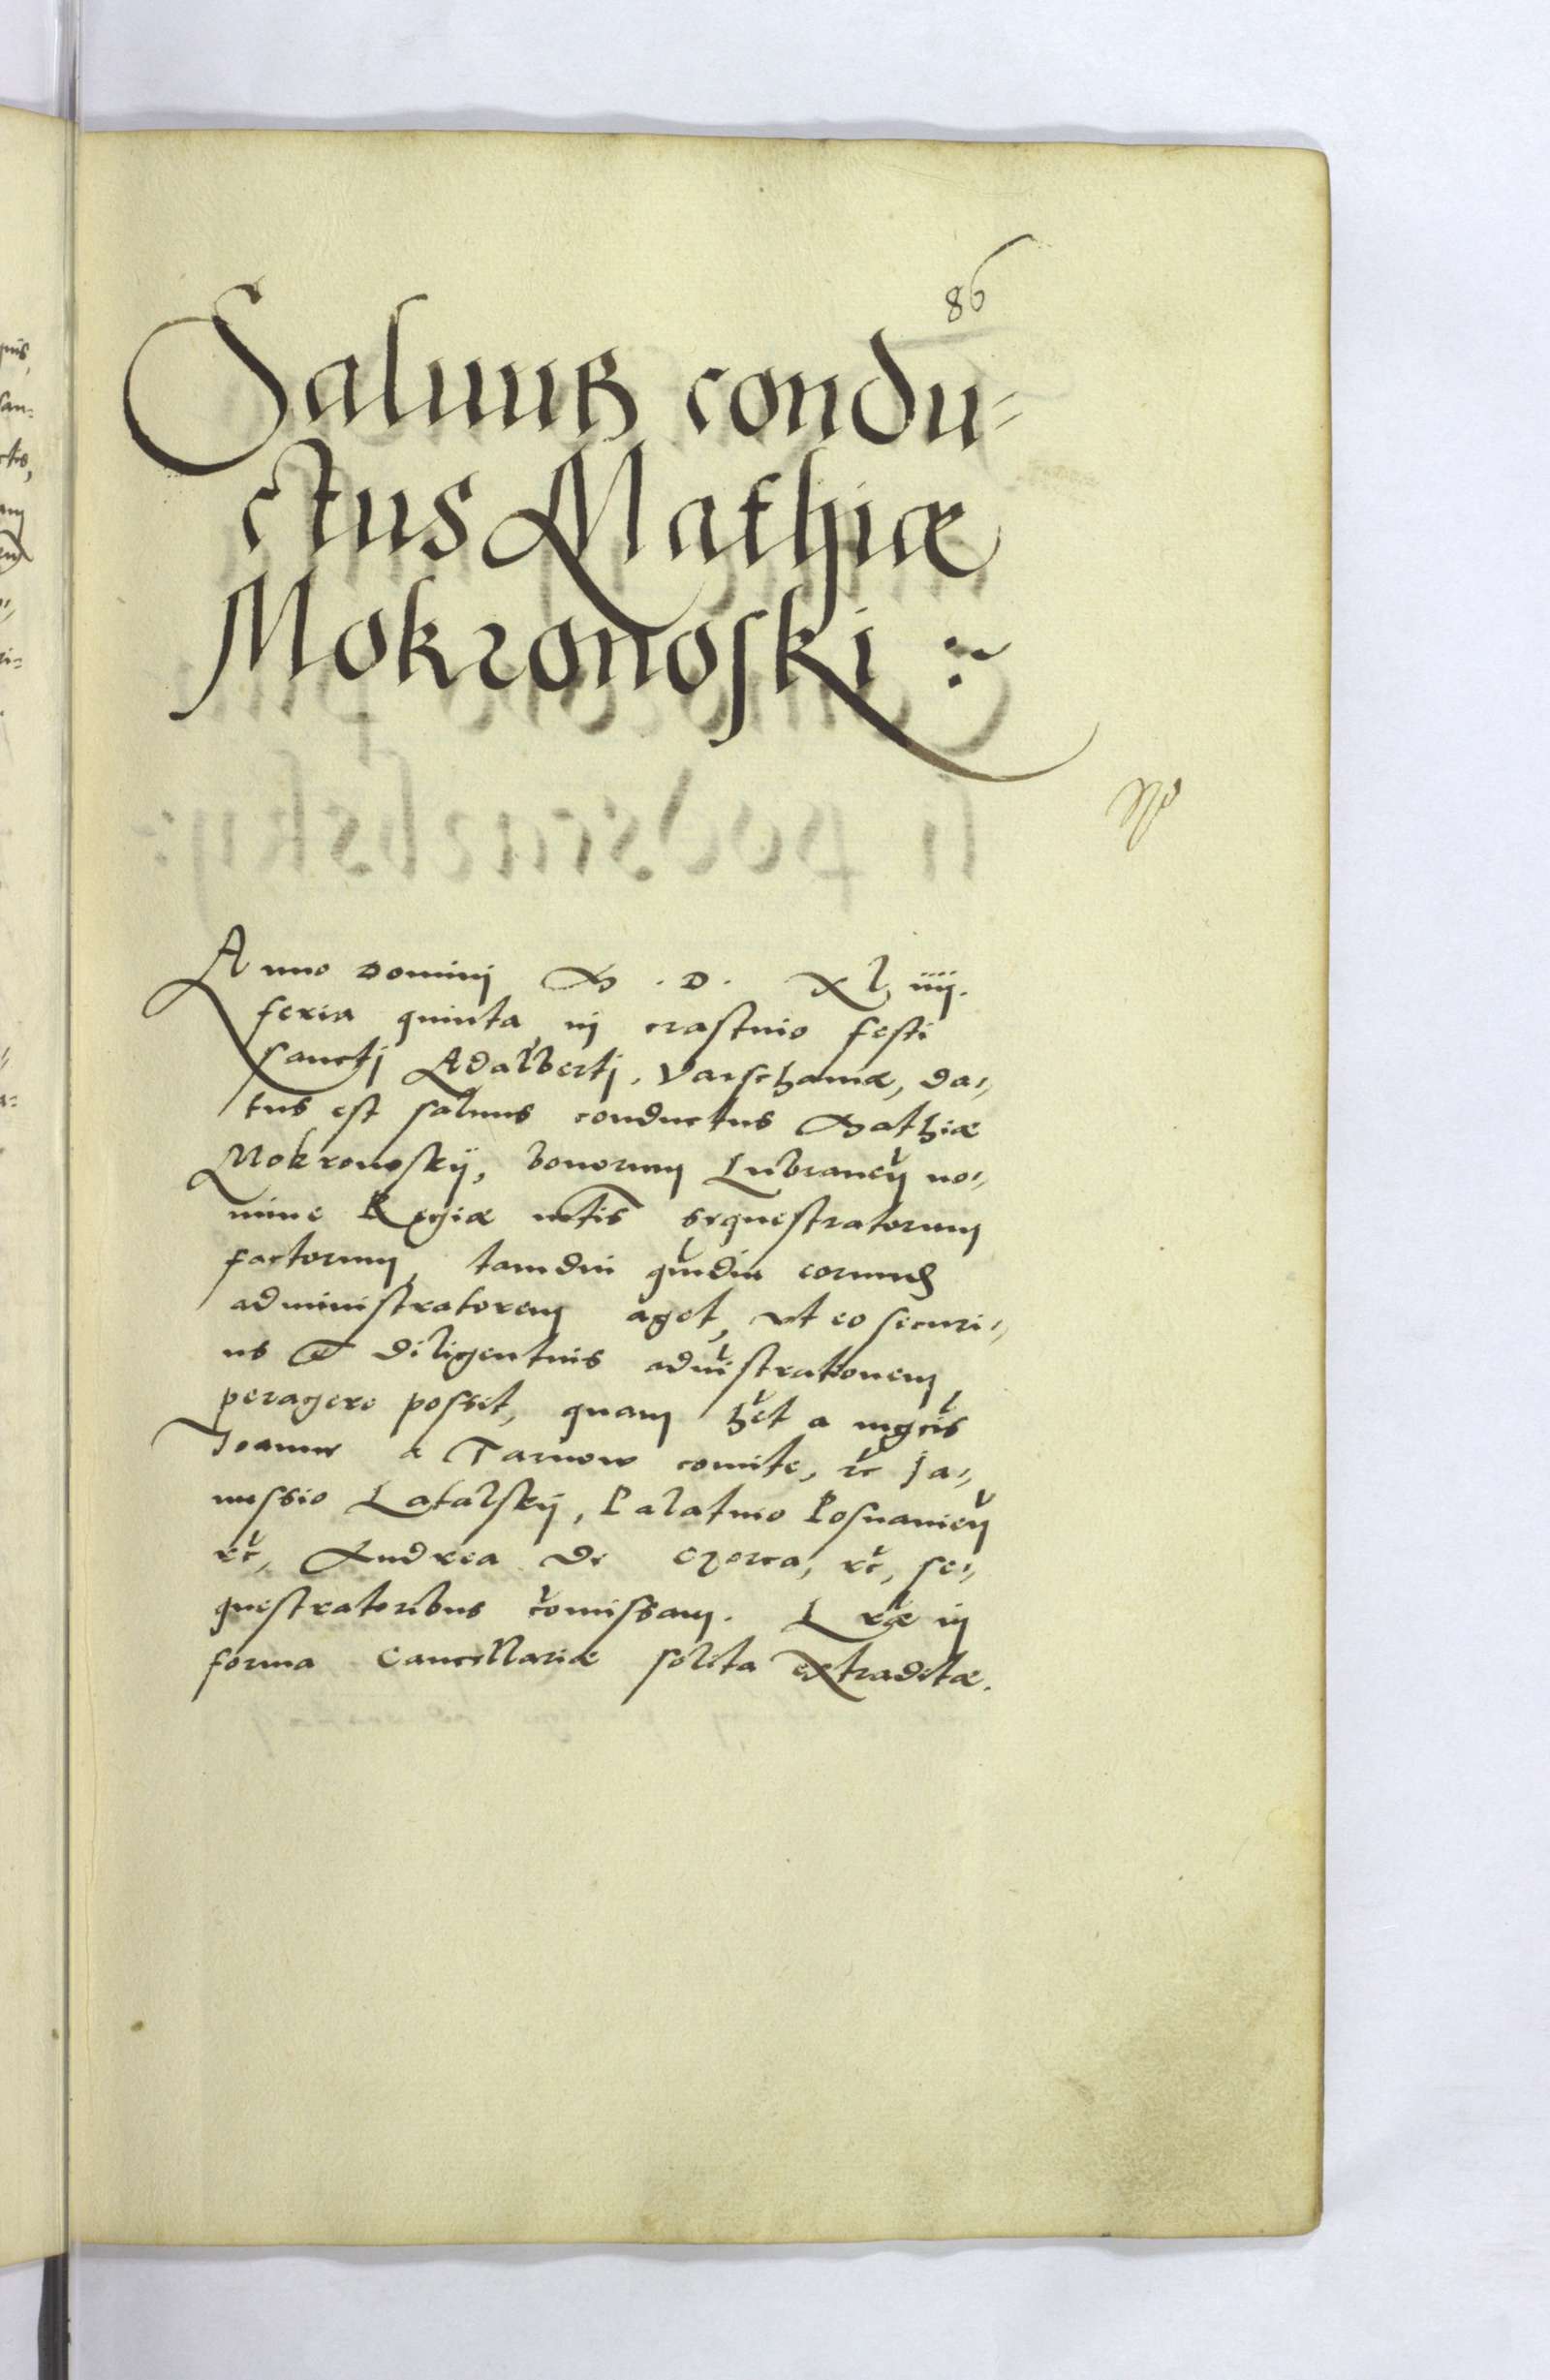 86
Saluus condu=
ctus Mathiæ
Mokronoski :~
Anno Domini M . D . XL iiij.
feria quinta in crastino festi
sancti Adalberti. Varschauiæ, da=
tus est saluus conductus Mathiæ
Mokronoskij, bonorum Lubrancij no=
mine Regiæ mtis sequestratorum
factorum, tamdiu qmdiu eorumd
administratorem aget, vt eo securi=
us et diligentius admistrationem
peragere possit, quam het a mgcis
Joanne a Tarnow comite, etc Ja=
nussio Latalskij, Palatino Posnanien
etc, Andrea de Czorca, etc, se=
questratoribus comissam. Lræ in
forma Cancellariæ solita extraditæ.